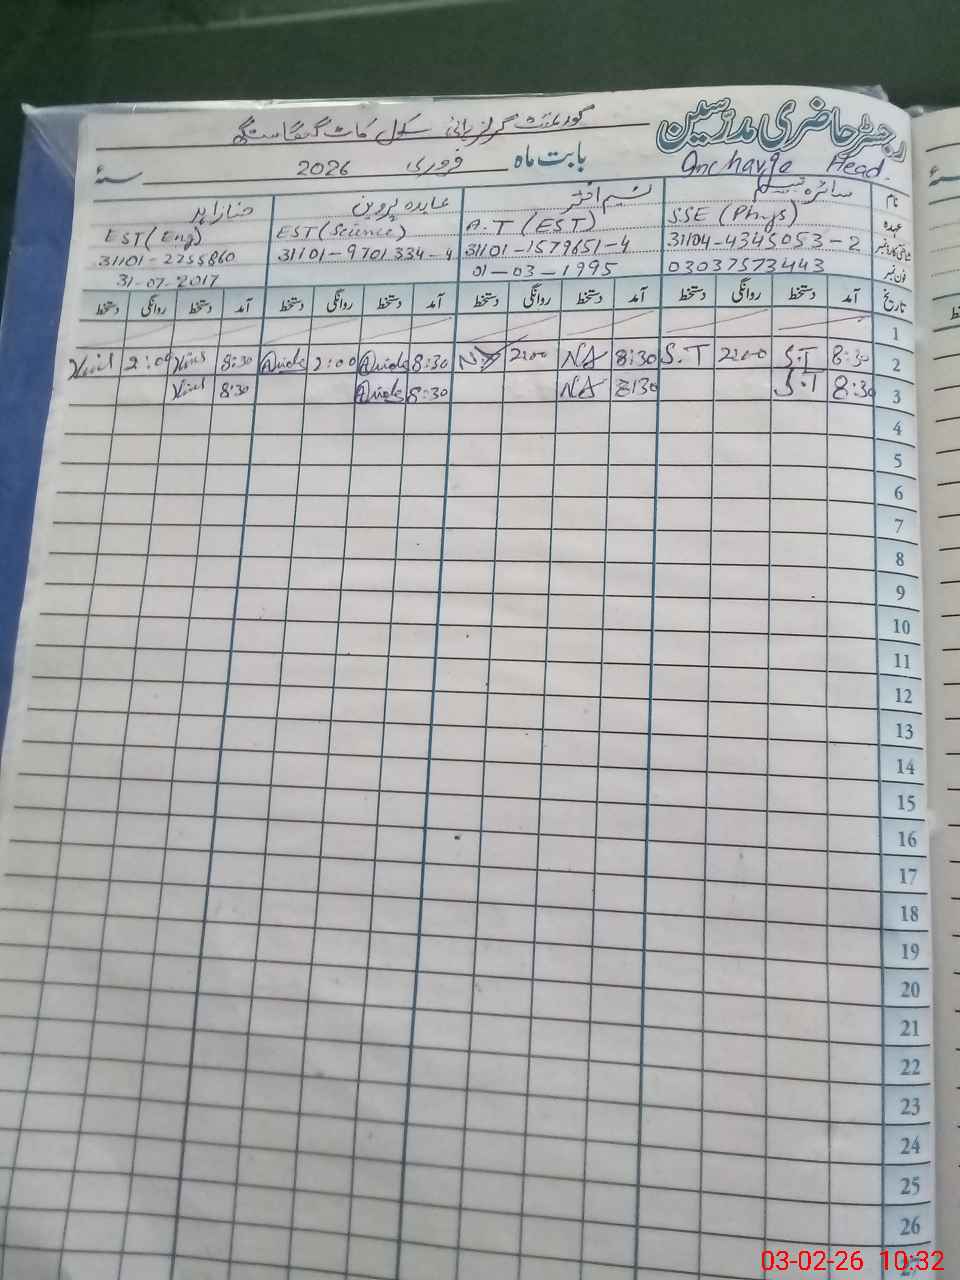 رجسٹر حاضری مدرسین
گورنمنٹ گرلز ہائی سکول کاٹ گنگا سنگھ
Incharge Head.
بابت ماہ فروری 2026 سنہ
نام سائرہ تبسم نسیم اختر عابدہ پروین حنا زاہد
عہدہ SSE (Phys) A.T (EST) EST (Science) EST (Eng)
شناختی کارڈ نمبر 31104-4345053-2 31101-1579651-4 31101-9701334-4 31101-2755860
فون نمبر 03037573443 01-03-1995 31-07-2017
تاریخ آمد دستخط روانگی دستخط آمد دستخط روانگی دستخط آمد دستخط روانگی دستخط آمد دستخط روانگی دستخط
1
2 8:30 S.T 2:00 S.T 8:30 NA 2:00 8:30 2:00 8:30 2:00
3 8:30 S.T 8:30 NA 8:30 8:30
4
5
6
7
8
9
10
11
12
13
14
15
16
17
18
19
20
21
22
23
24
25
26
27
03-02-26 10:32